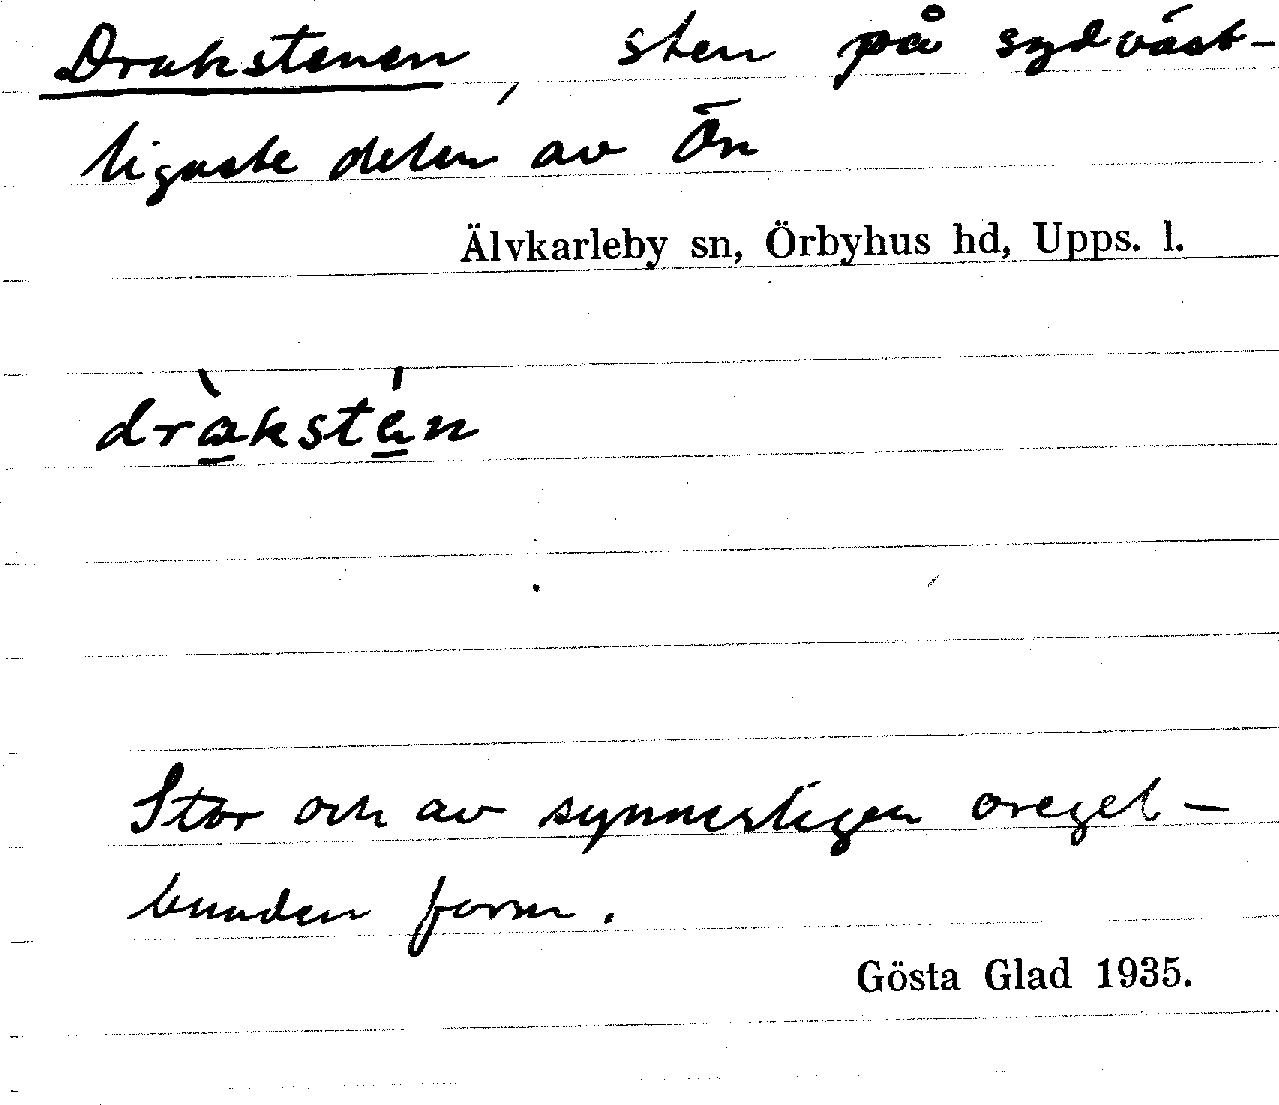 Drakstenen, sten på sydväst-
ligaste delen av Ön
Älvkarleby sn, Örbyhus hd, Upps. l.
drà̱ksté̱n
Stor och av synnerligen oregel-
bunden form.
Gösta Glad 1935.